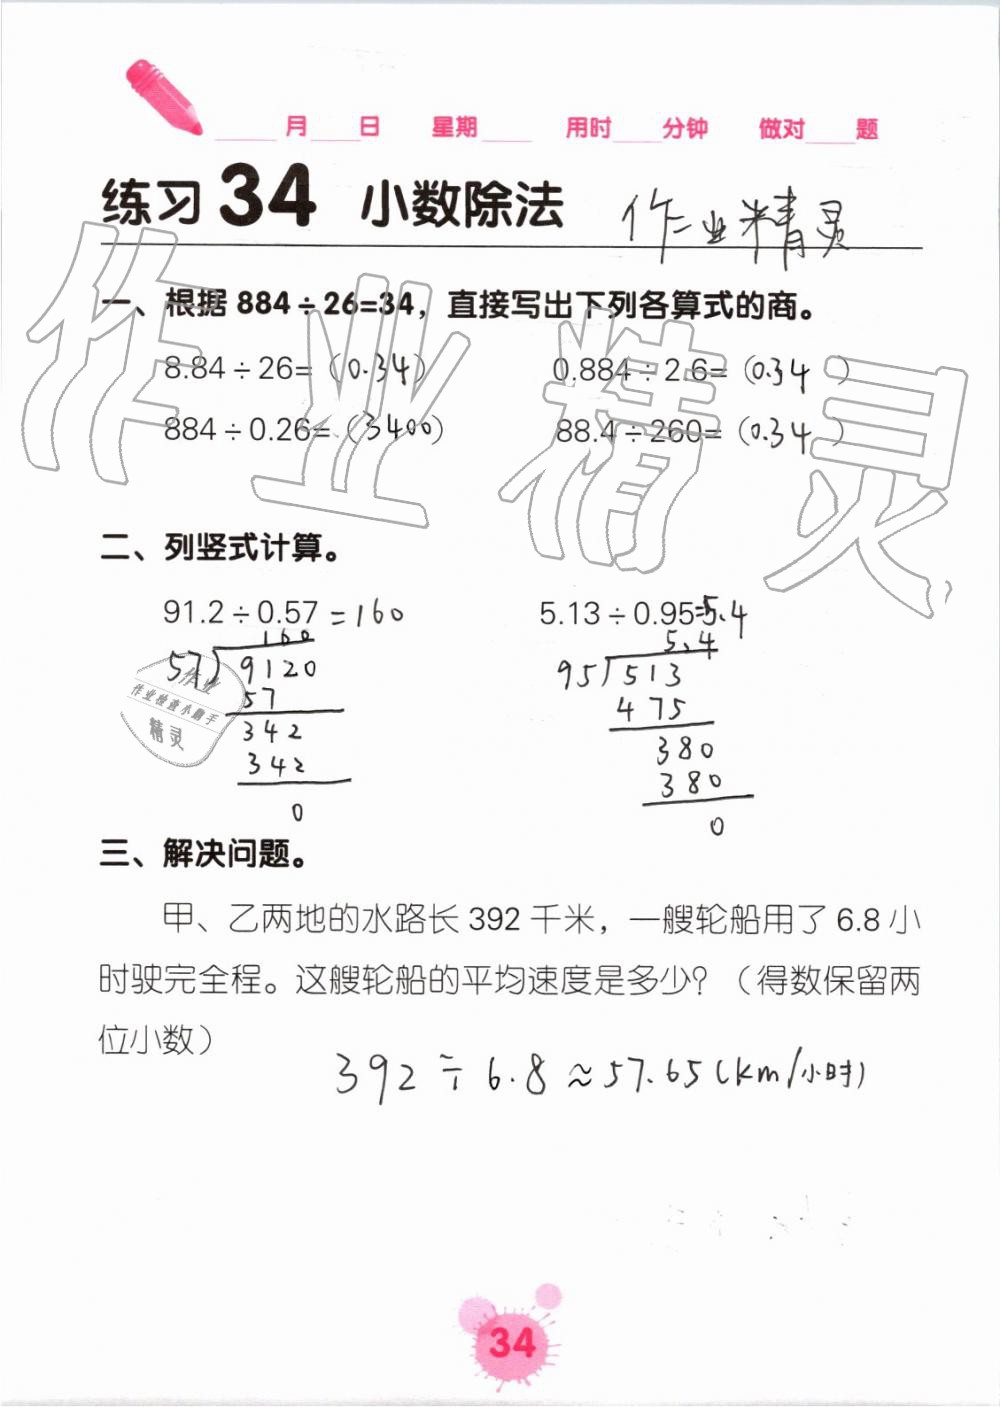 月 日 星期 用时 分钟 做对 题
练习34 小数除法 作业精灵
一、根据 884÷26=34，直接写出下列各算式的商。
8.84÷26=（0.34） 0.884÷2.6=（0.34）
884÷0.26=（3400） 88.4÷260=（0.34）
作业精灵
二、列竖式计算。
91.2÷0.57=160 5.13÷0.95=5.4
160
57)9120
57
342
342
0
5.4
95)513
475
380
380
0
作业
作业检查小助手
精灵
三、解决问题。
甲、乙两地的水路长 392 千米，一艘轮船用了 6.8 小
时驶完全程。这艘轮船的平均速度是多少？（得数保留两
位小数）
392÷6.8≈57.65(km/小时)
34